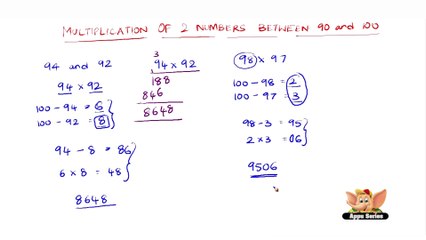 MULTIPLICATION OF 2 NUMBERS BETWEEN 90 and 100
94 and 92
94 x 92
100 - 94 = 6
100 - 92 = 8
94 - 8 = 86
6 x 8 = 48
8648
3
94 x 92
188
846
8648
98 x 97
100 - 98 = 2
100 - 97 = 3
98 - 3 = 95
2 x 3 = 06
9506
Appu Series